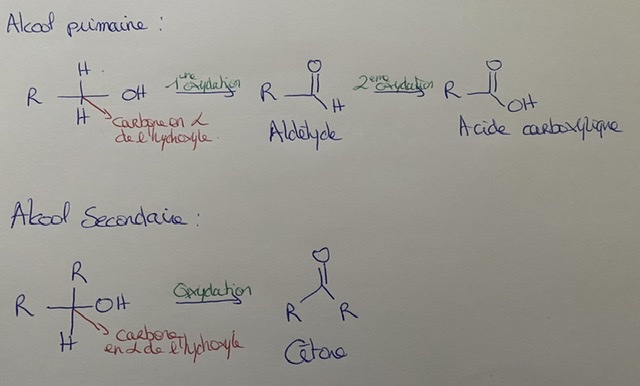 Alcool primaire :
H
R OH 1ère oxydation O R H 2ème oxydation O R OH
H
carbone en α
de l'hydroxyle.
Aldéhyde
Acide carboxylique
Alcool Secondaire :
R
R OH Oxydation O R R
H
carbone
en α de l'hydroxyle
Cétone